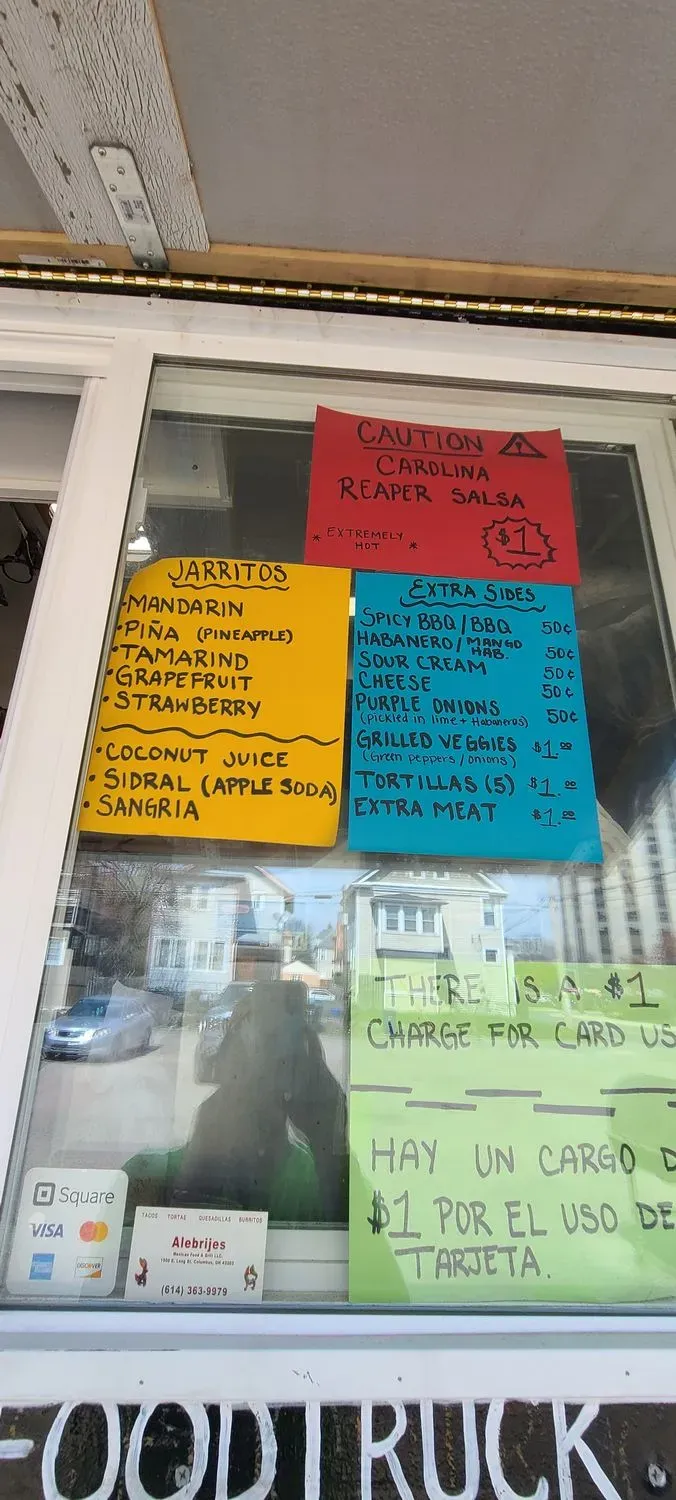 CAUTION
CAROLINA
REAPER SALSA
* EXTREMELY
HOT *
$1
JARRITOS
•MANDARIN
•PIÑA (PINEAPPLE)
•TAMARIND
•GRAPEFRUIT
•STRAWBERRY
•COCONUT JUICE
•SIDRAL (APPLE SODA)
•SANGRIA
EXTRA SIDES
SPICY BBQ/BBQ 50¢
HABANERO/MANGO HAB. 50¢
SOUR CREAM 50¢
CHEESE 50¢
PURPLE ONIONS 50¢
(pickled in lime + Habaneros)
GRILLED VEGGIES $1.00
(Green peppers/onions)
TORTILLAS (5) $1.00
EXTRA MEAT $1.00
THERE IS A $1
CHARGE FOR CARD US
HAY UN CARGO D
$1 POR EL USO DE
TARJETA.
Square
VISA
DISCOVER
TACOS TORTAS QUESADILLAS BURRITOS
Alebrijes
Mexican Food & Grill LLC.
1500 E. Long St. Columbus, OH 43203
(614) 363-9979
FOODTRUCK